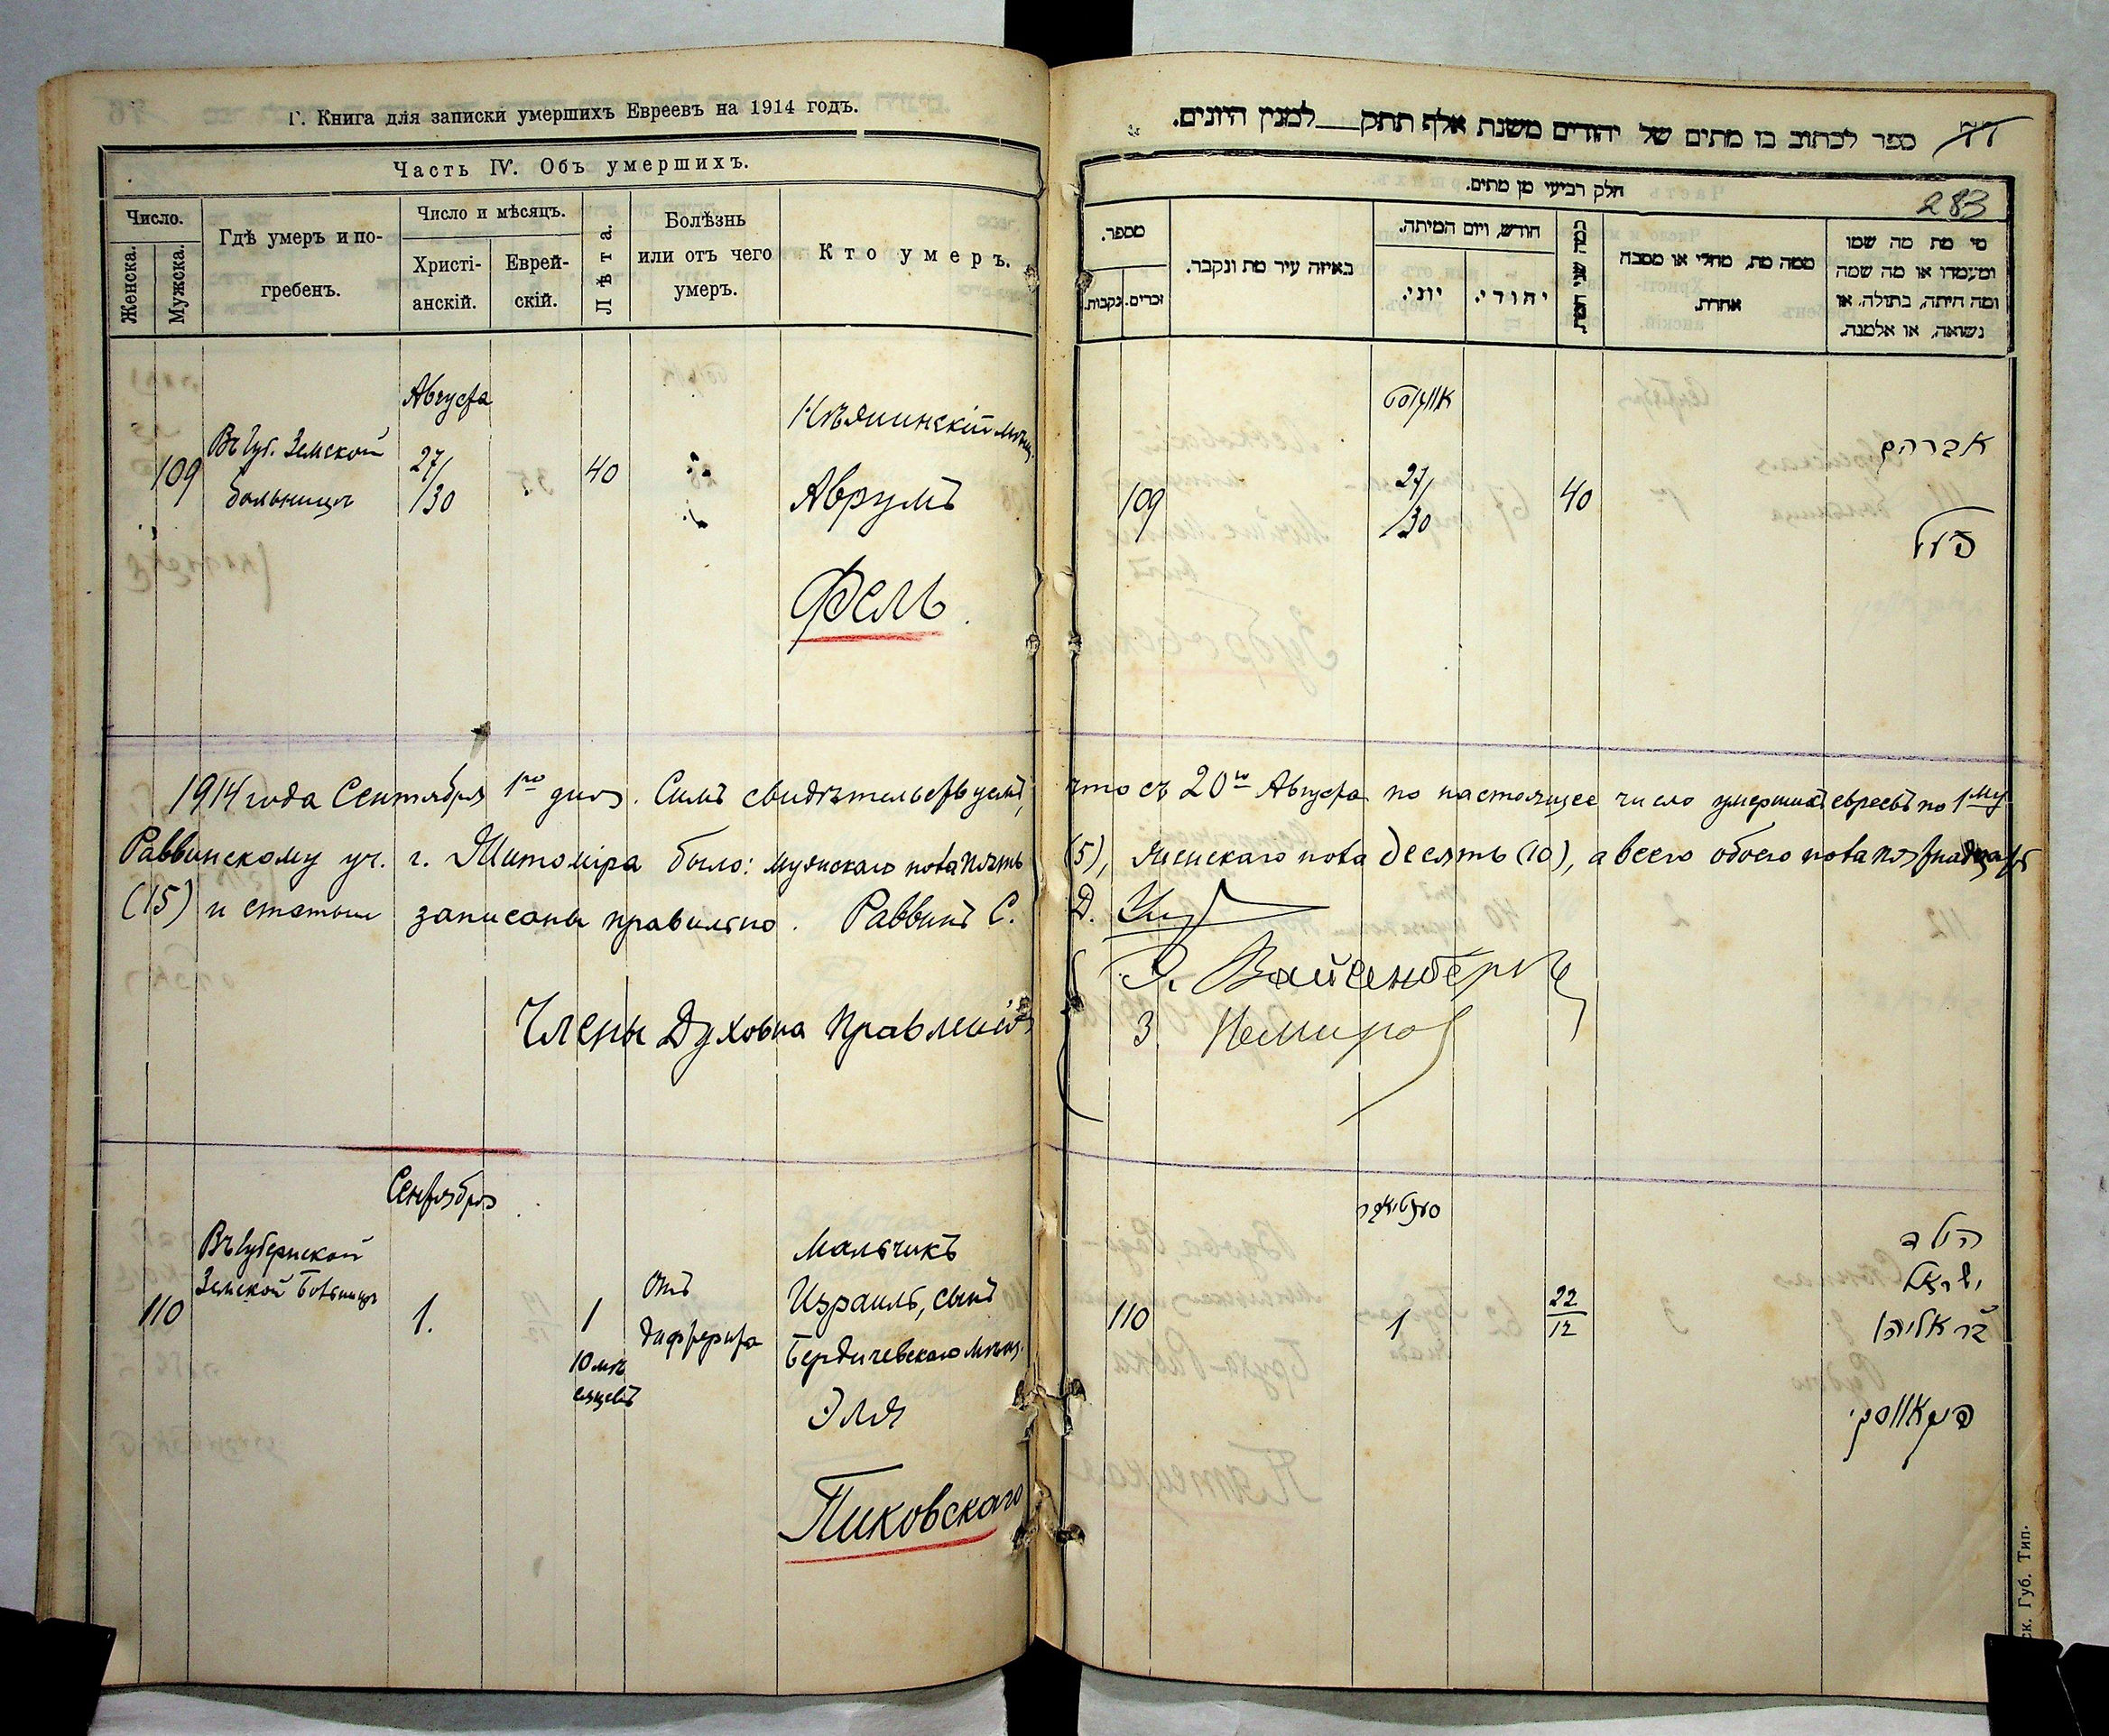 Г. Книга для записки умершихъ Евреевъ на 1914 годъ.
Часть IV. Объ умершихъ.
Число.
Женска.
Мужска.
Гдѣ умеръ и по-
гребенъ.
Число и мѣсяцъ.
Христі-
анскій.
Еврей-
скій.
Лѣта.
Болѣзнь
или отъ чего
умеръ.
Кто умеръ.
Августа
109
Въ Губ. Земской
больницѣ
27/
/30
40
мѣщ.
Аврумъ
Фель.
1914 года Сентября 1го дня. Симъ свидѣтельствуемъ,
Раввинскому уч. г. Житоміра было: мужскаго пола пять
(15) и статьи записаны правильно. Раввинъ С.
Члены Духовна Правленія
Сентября
110
Въ Губернской
Земской Больницѣ
1.
1
10 мѣ
сяцевъ
отъ
дифтерита
Мальчикъ
Израиль, сынъ
Бердичевскаго мѣщ.
Эля
Пиковскаго
ספר לכתוב בו מתים של יהודים משנת אלף תתק למנין היונים.
77
חלק רביעי מן מתים.
283
מספר.
זכרים.
נקבות.
באיזה עיר מת ונקבר.
חודש, ויום המיתה.
יוני.
יהודי.
כמה שני המת.
ממה מת, מחלי או מסבה
אחרת.
מי מת מה שמו
ומעמדו או מה שמה
ומה היתה, בתולה, או
נשואה, או אלמנה.
אויגוסט
109
27/
/30
40
אברהם
פעל
что съ 20го Августа по настоящее число умершихъ евреевъ по 1му
(5), женскаго пола десять (10), а всего обоего пола пятнадцать
Д.
Вайсенбергъ
З Немиров
סענטיאבר
110
1
22
12
הילד
ישראל
בר אליהו
פיקאווסקי
ск. Губ. Тип.